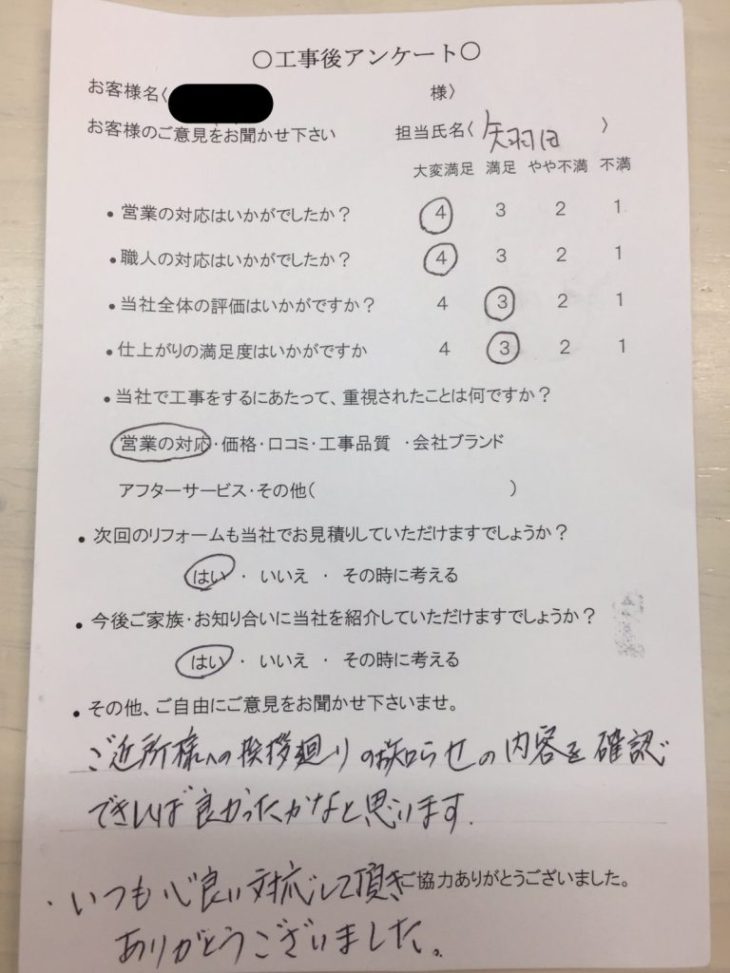 〇工事後アンケート〇
お客様名〈 様〉
お客様のご意見をお聞かせ下さい 担当氏名〈 〉
大変満足 満足 やや不満 不満
・営業の対応はいかがでしたか？ 4 3 2 1
・職人の対応はいかがでしたか？ 4 3 2 1
・当社全体の評価はいかがですか？ 4 3 2 1
・仕上がりの満足度はいかがですか 4 3 2 1
・当社で工事をするにあたって、重視されたことは何ですか？
営業の対応・価格・口コミ・工事品質 ・会社ブランド
アフターサービス・その他( )
・次回のリフォームも当社でお見積りしていただけますでしょうか？
はい ・ いいえ ・ その時に考える
・今後ご家族・お知り合いに当社を紹介していただけますでしょうか？
はい ・ いいえ ・ その時に考える
・その他、ご自由にご意見をお聞かせ下さいませ。
ご近所様への挨拶廻りのお知らせの内容を確認
できれば良かったかなと思います.
・いつも心良い対応して頂き
ご協力ありがとうございました。
ありがとうございました。